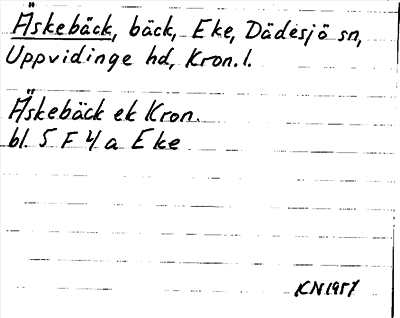 Äskebäck, bäck, Eke, Dädesjö sn,
Uppvidinge hd, Kron.l.
Äskebäck ek Kron.
bl. 5 F 4 a Eke
KN 1957